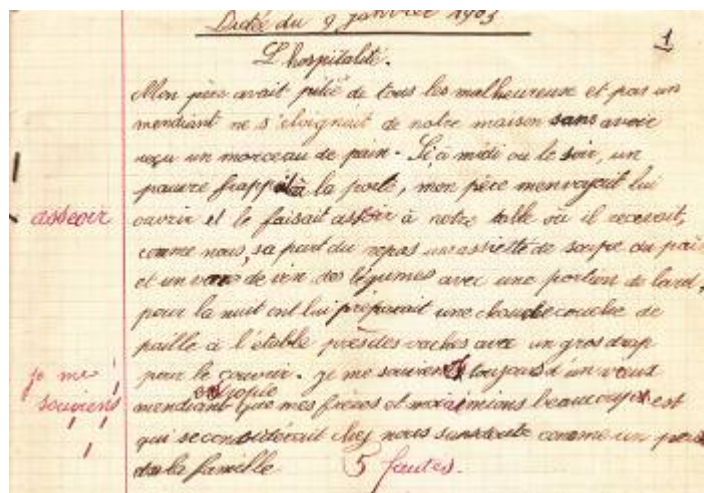 Dictée du 9 janvier 1903
1
L'hospitalité.
Mon père avait pitié de tous les malheureuse et pas un
mendiant ne s'eloignait de notre maison sans avoir
reçu un morceau de pain. Si à midi ou le soir, un
pauvre frappait à la porte, mon père menvoyait lui
asseoir
ouvrir et le faisait assoir à notre table où il recevait,
comme nous, sa part du repas une assiette de soupe du pain
et un verre de vin des légumes avec une portion de lard,
pour la nuit ont lui preparait une chaude couche de
paille à l'étable près des vaches avec un gros drap
je me
pour le couvrir. je me souviens toujours d'un vieux
souviens
estropié
mendiant que mes frères et moi aimions beaucoup est
qui se considérait chez nous sans doute comme un
de la famille 5 fautes.